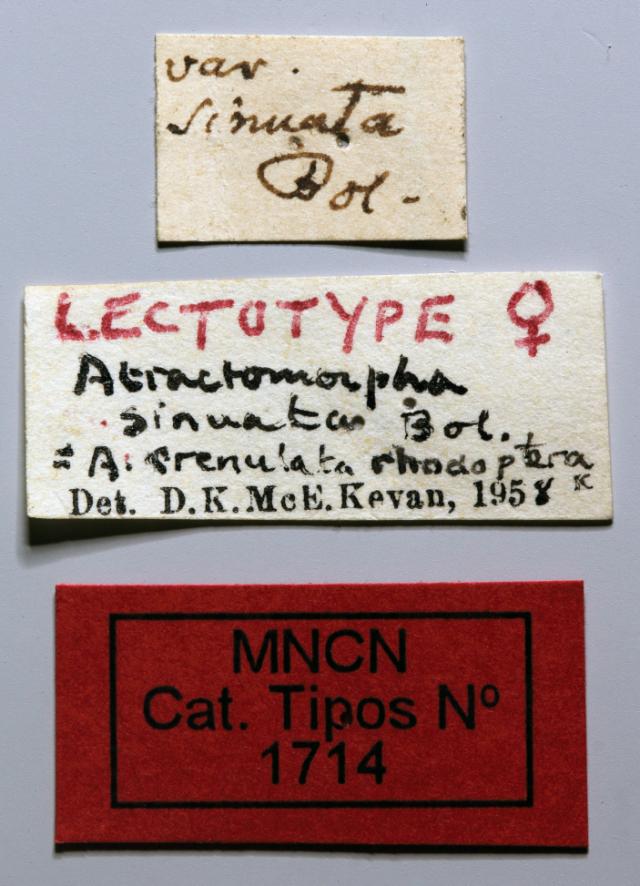 var.
sinuata
Bol.
LECTOTYPE ♀
Atractomorpha
sinuata Bol.
= A. crenulata rhodoptera
K
Det. D.K.McE.Kevan, 1958
MNCN
Cat. Tipos Nº
1714